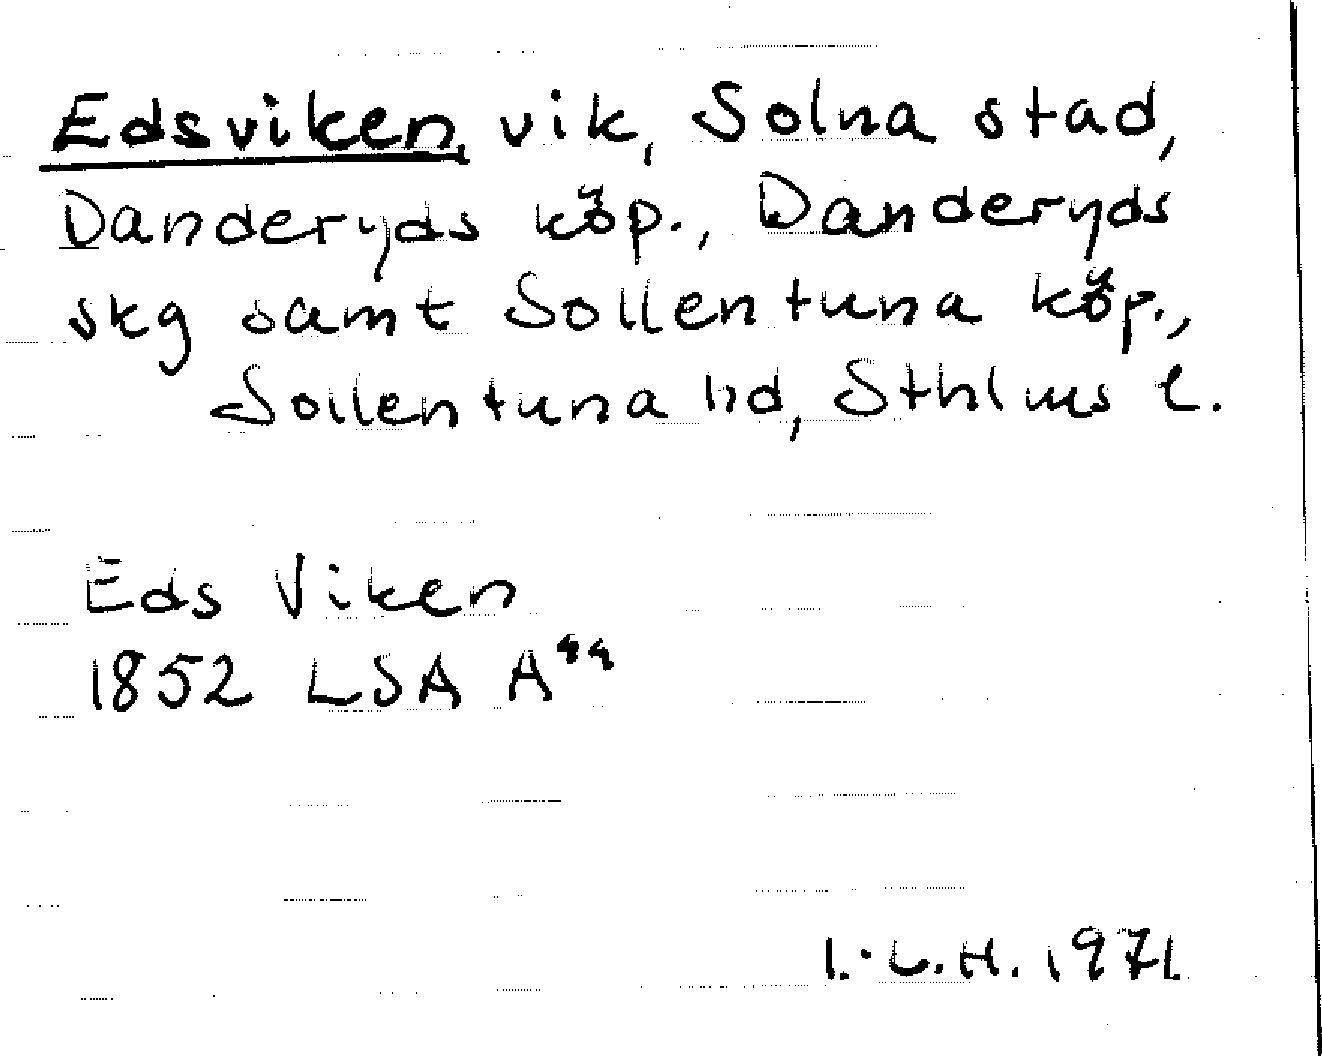 Edsviken, vik, Solna stad,
Danderyds köp., Danderyds
skg samt Sollentuna köp.,
Sollentuna hd, Sthlms l.
Eds Viken
1852 LSA A⁴⁴
I.-L.H. 1971